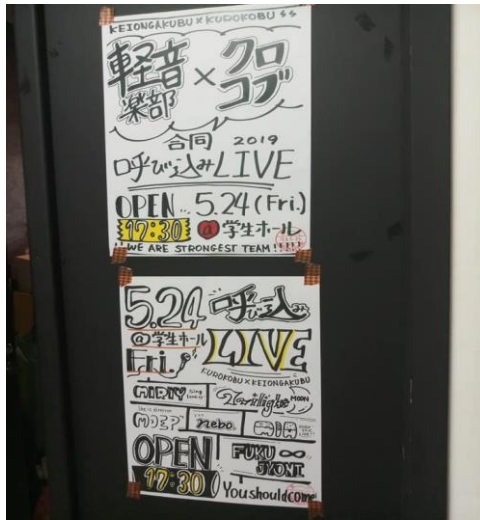 KEIONGAKUBU × KUROKOBU
軽音楽部 × クロコブ
合同 2019
呼び込みLIVE
OPEN 5.24(Fri.)
17:30 @学生ホール
WE ARE STRONGEST TEAM!!!!
5.24 呼び込み
@学生ホール LIVE
Fri.
KUROKOBU × KEIONGAKUBU
MOON
nebo.
MIA
OPEN
17:30
FUKU ∞
JYONI
You should come